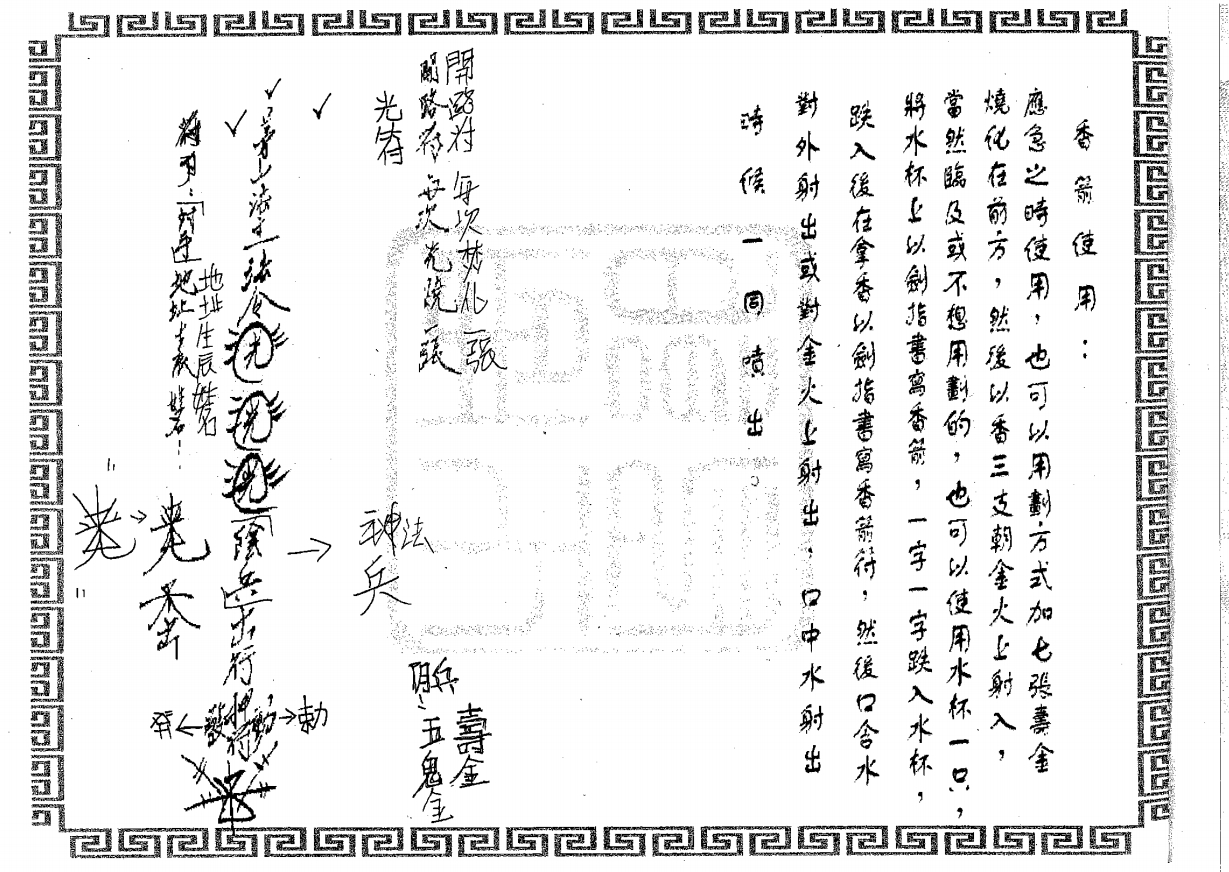 香箭使用：
應急之時使用，也可以用劃方式加七張壽金
燒化在前方，然後以香三支朝金火上射入，
當然臨及或不想用劃的，也可以使用水杯一只，
將水杯上以劍指書寫香箭，一字一字跌入水杯，
跌入後在拿香以劍指書寫香箭符，然後口含水
對外射出或對金火上射出，口中水射出
時候一同噴出。
開路符 每次焚化一張
開路符 每次光燒一張
光符
神法
兵
壽金
陰兵
五鬼金
茅山法主一 法令
陰兵 出行
勅
發
地址生辰姓名
地址生辰 姓名…